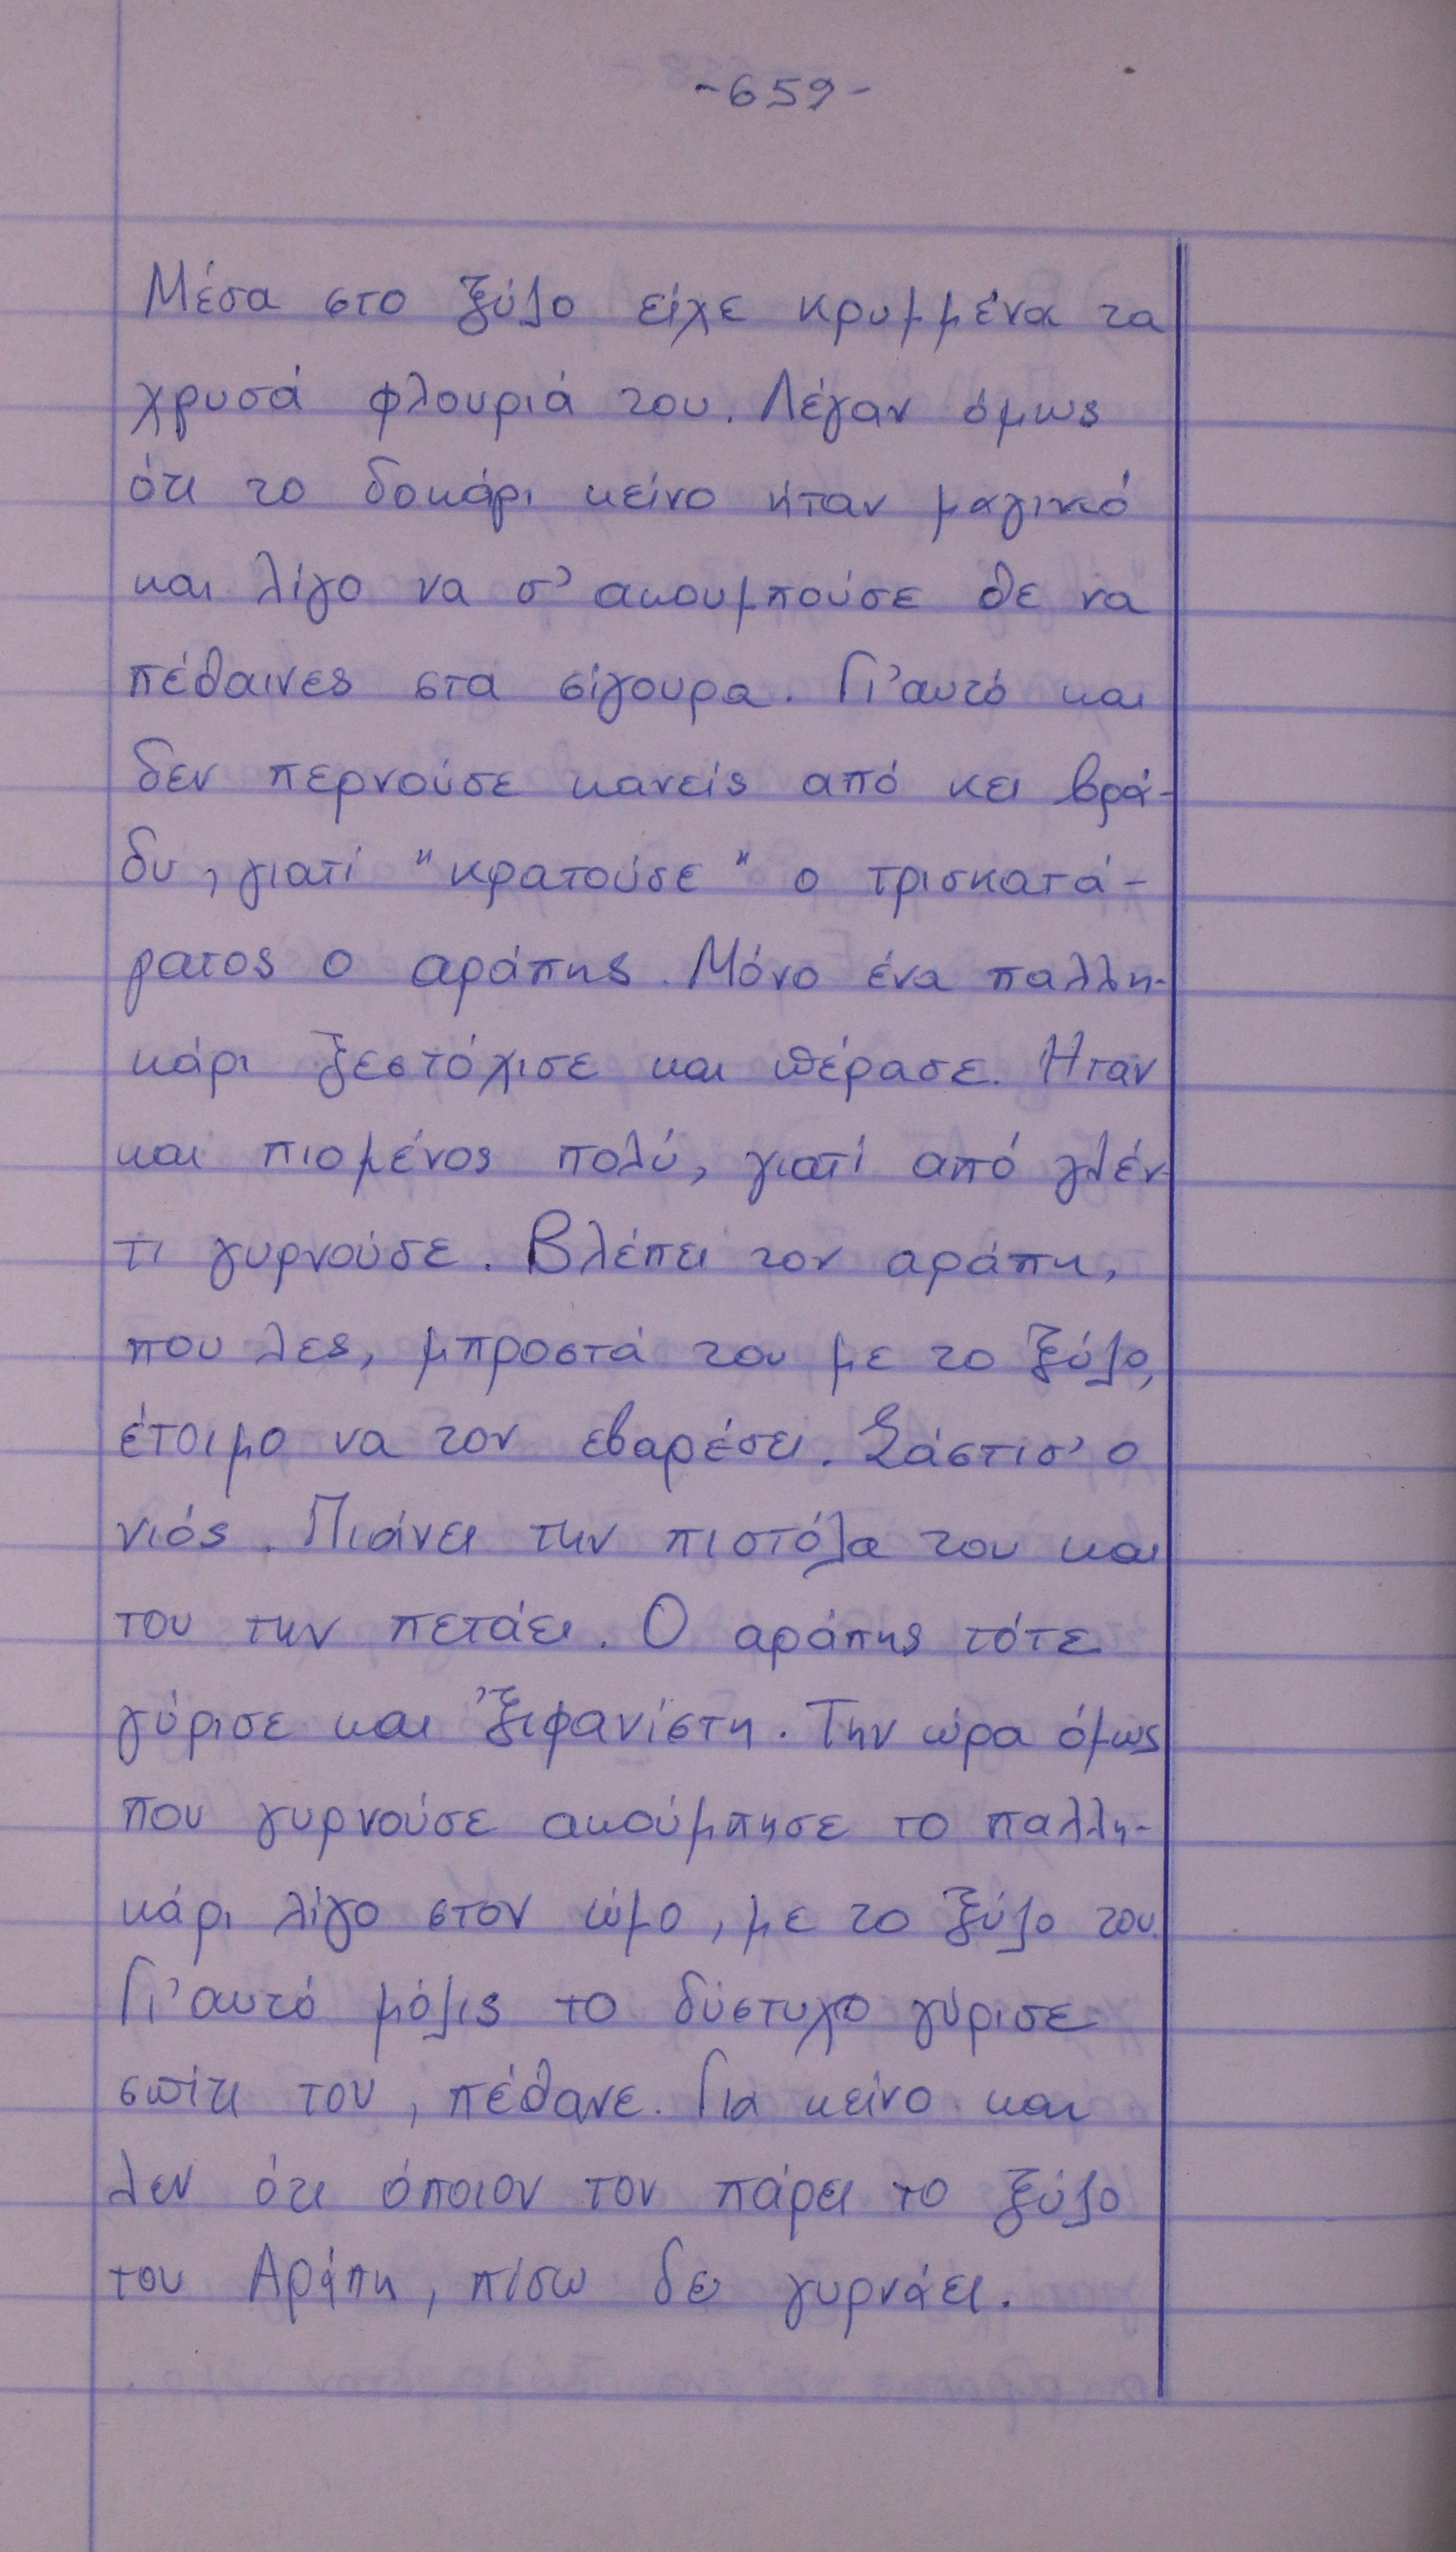 -659-
Μέσα στο ξύλο είχε κρυμμένα τα
χρυσά φλουριά του. Λέγαν όμως
ότι το δοκάρι κείνο ήταν μαγικό
και λίγο να σ' ακουμπούσε θε να
πέθαινες στα σίγουρα. Γι'αυτό και
δεν περνούσε κανείς από κει βρά-
δυ, γιατί "κρατούσε" ο τρισκατά-
ρατος ο αράπης. Μόνο ένα παλλη-
κάρι ξεστόχισε και πέρασε. Ήταν
και πιομένος πολύ, γιατί από γλέν-
τι γυρνούσε. Βλέπει τον αράπη,
που λες, μπροστά του με το ξύλο,
έτοιμο να τον εβαρέσει. Σάστισ' ο
νιός. Πιάνει την πιστόλα του και
του την πετάει. Ο αράπης τότε
γύρισε και 'ξιφανίστη. Την ώρα όμως
που γυρνούσε ακούμπησε το παλλη-
κάρι λίγο στον ώμο, με το ξύλο του.
Γι'αυτό μόλις το δύστυχο γύρισε
σπίτι του, πέθανε. Για κείνο και
λεν ότι όποιον τον πάρει το ξύλο
του Αράπη, πίσω δε γυρνάει.